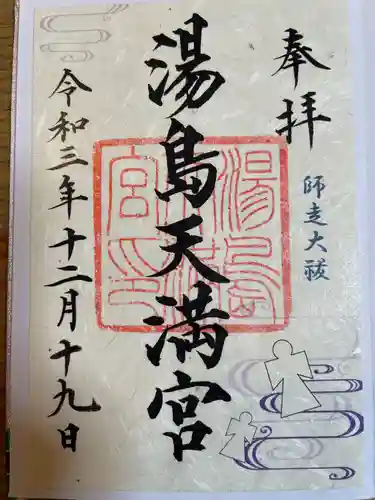 奉拝
師走大祓
湯島天満宮
令和三年十二月十九日
湯島天満宮印